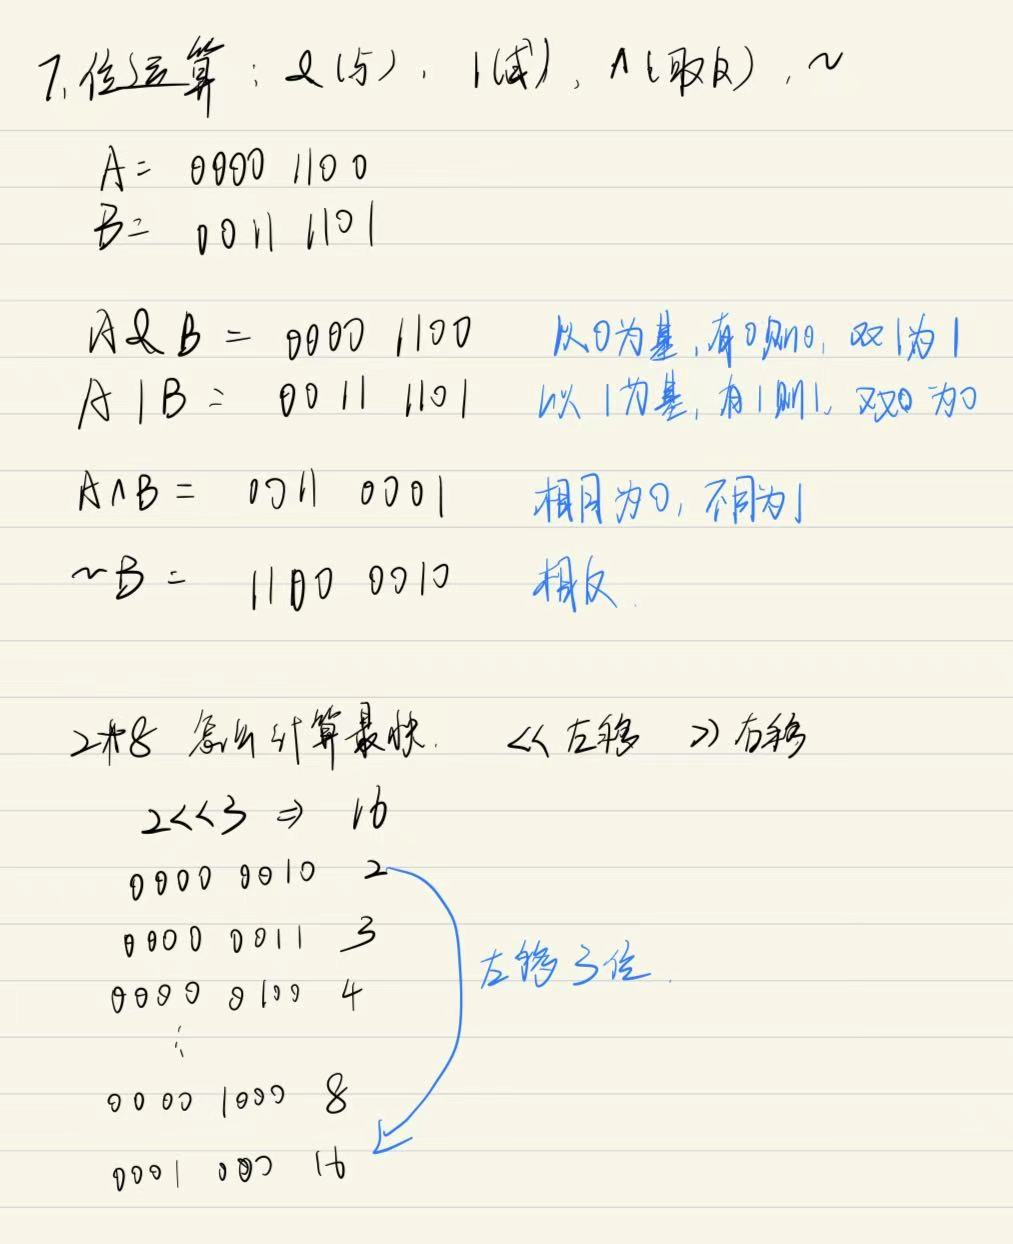 7. 位运算：&（与），|（或），^（取反），~
A = 0000 1100
B = 0011 1101
A & B = 0000 1100 以0为基，有0则0，双1为1
A | B = 0011 1101 以1为基，有1则1，双0为0
A ^ B = 0011 0001 相同为0，不同为1
~ B = 1100 0010 相反.
2*8 怎么计算最快. << 左移 >> 右移
2<<3 => 16
0000 0010 2
0000 0011 3
左移3位.
0000 0100 4
⋮
0000 1000 8
0001 000 16